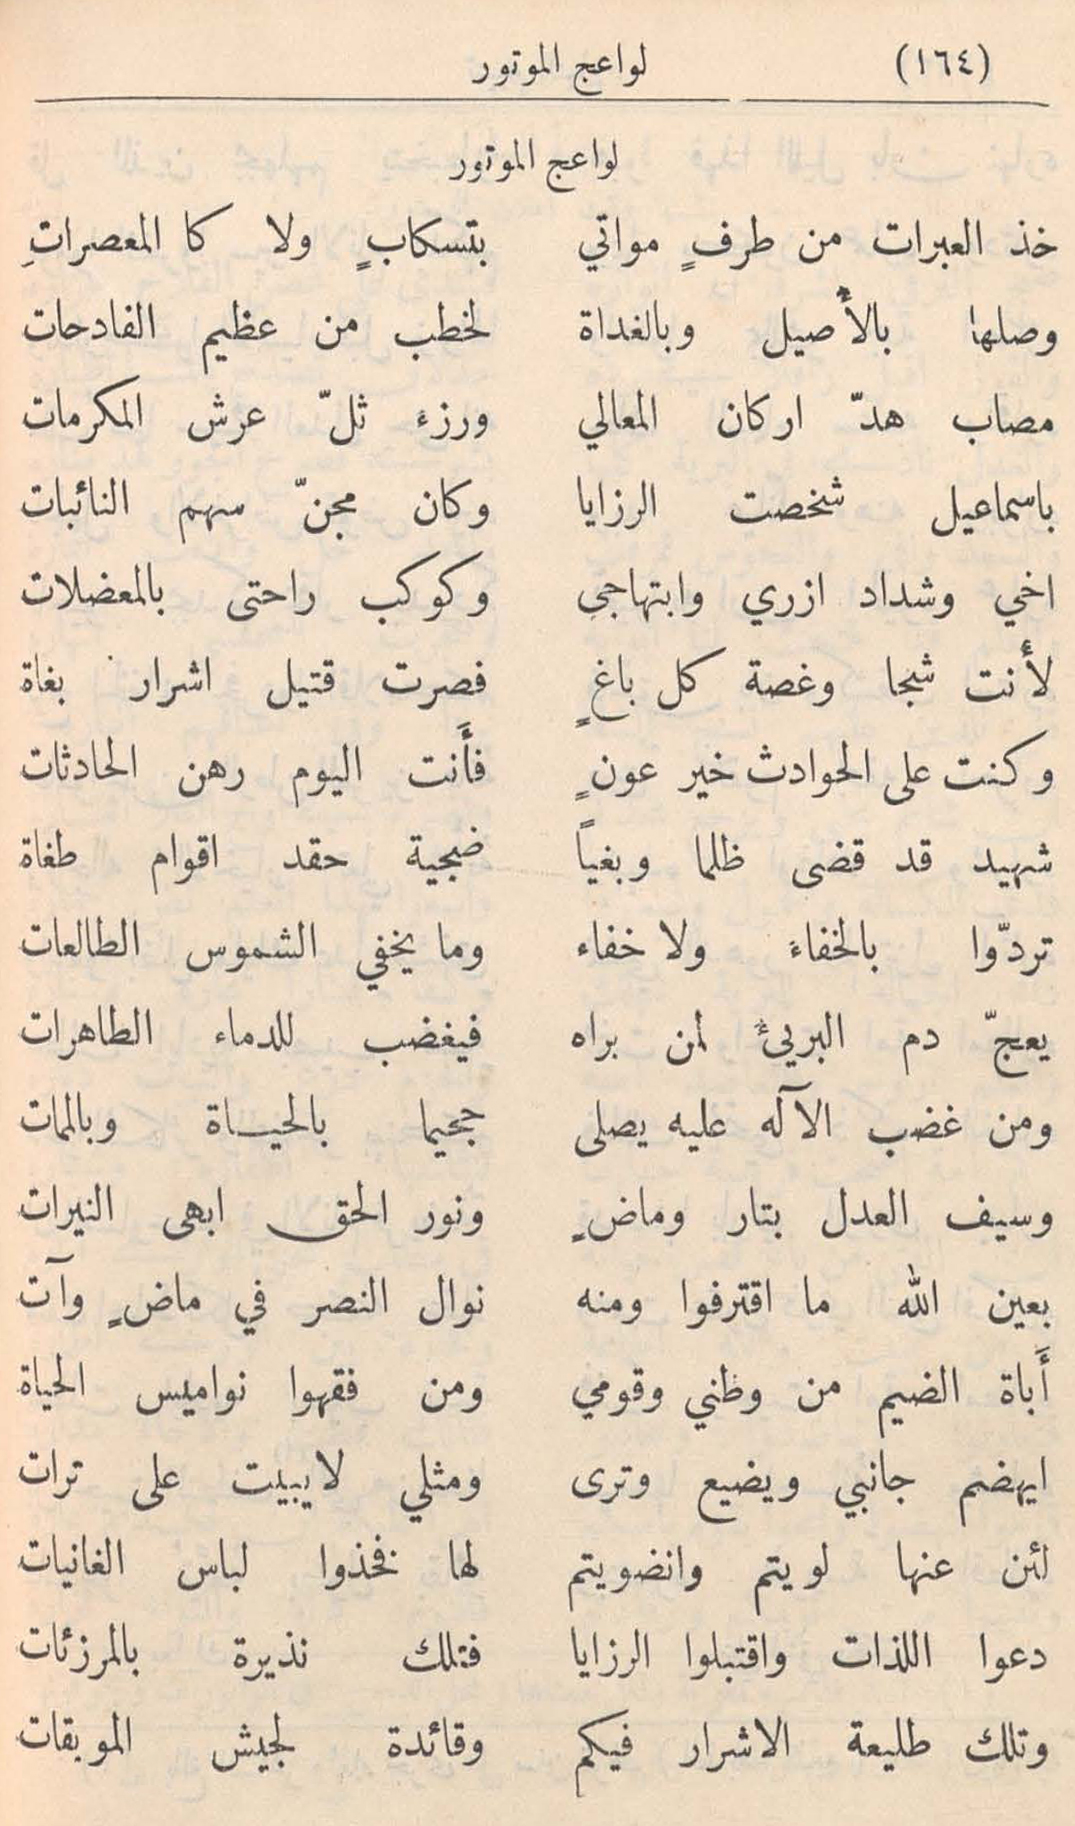 (١٦٤) لواعج الموتور
لواعج الموتور
خذ العبرات من طرفٍ مواتي بتسكابٍ ولا كا المعصراتِ
وصلها بالأصيل وبالغداة لخطب من عظيم الفادحات
مصاب هدّ اركان المعالي ورزء ثلّ عرش المكرمات
باسماعيل شخصت الرزايا وكان مجنّ سهم النائبات
اخي وشداد ازري وابتهاجي وكوكب راحتى بالمعضلات
لأنت شجا وغصة كل باغٍ فصرت قتيل اشرار بغاة
وكنت على الحوادث خير عونٍ فأنت اليوم رهن الحادثات
شهيد قد قضى ظلما وبغياً ضحية حقد اقوام طغاة
تردّوا بالخفاء ولا خفاء وما يخفي الشموس الطالعات
يعجّ دم البريئ لمن براه فيغضب للدماء الطاهرات
ومن غضب الآله عليه يصلى جحيما بالحياة وبالممات
وسيف العدل بتار وماضٍ ونور الحق ابهى النيرات
بعين الله ما اقترفوا ومنه نوال النصر في ماضٍ وآت
أباة الضيم من وطني وقومي ومن فقهوا نواميس الحياة
ايهضم جانبي ويضيع وترى ومثلي لا يبيت على ترات
لئن عنها لويتم وانضويتم لها فخذوا لباس الغانيات
دعوا اللذات واقتبلوا الرزايا فتلك نذيرة بالمرزئات
وتلك طليعة الاشرار فيكم وقائدة لجيش الموبقات